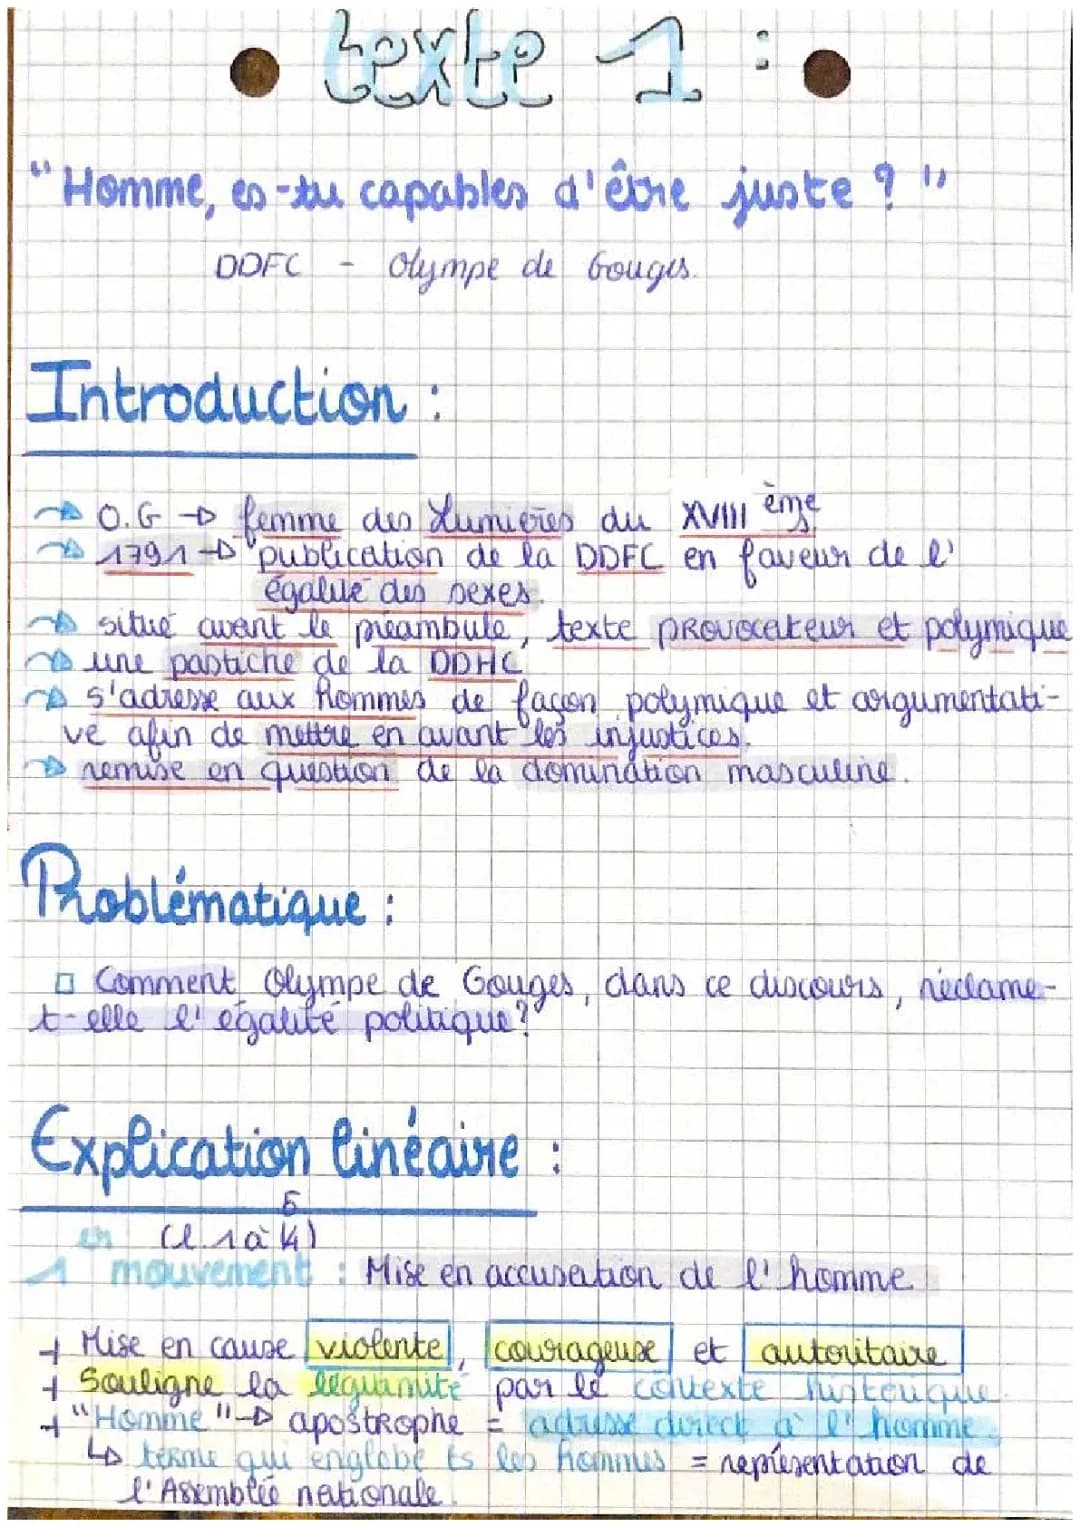 texte 1 :
"Homme, es-tu capables d'être juste ? "
DDFC - Olympe de Gouges.
Introduction :
→ O.G → femme des Lumières du XVIII ème
→ 1791 → publication de la DDFC en faveur de l'
égalité des sexes.
→ situé avant le préambule, texte provocateur et polymique
→ une pastiche de la DDHC
→ s'adresse aux hommes de façon polymique et argumentati-
ve afin de mettre en avant les injustices.
→ remise en question de la domination masculine.
Problématique :
□ Comment Olympe de Gouges, dans ce discours, réclame-
t-elle l'égalité politique?
Explication linéaire :
5
er (l.1à 4)
1 mouvement : Mise en accusation de l'homme
+ Mise en cause violente, courageuse et autoritaire
+ Souligne la légiamité par le contexte historique.
+ "Homme" → apostrophe = adresse direct à l'homme.
↳ terme qui englobe ts les hommes = représentation de
l'Assemblée nationale.